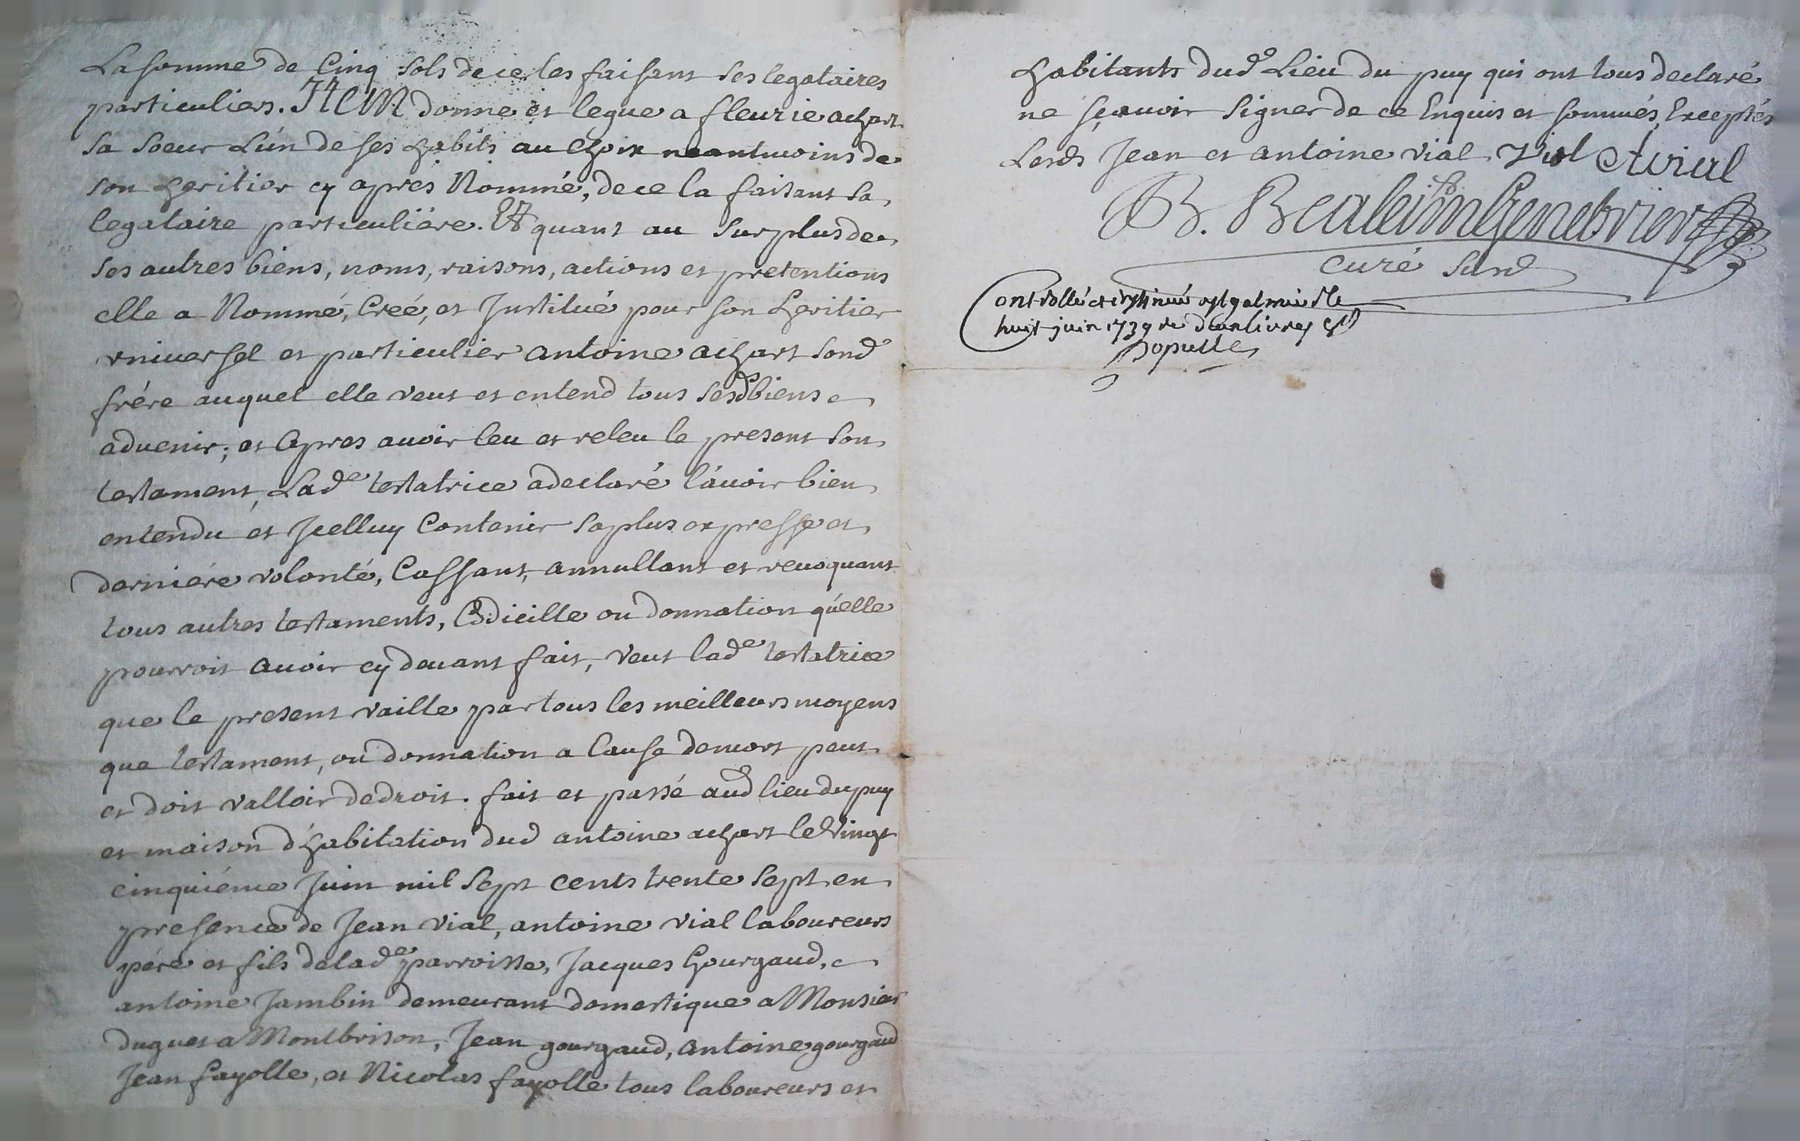 La somme de Cinq sols de ce les faisant ses legataires
particuliers. ITEM donne et legue a fleurie achart
sa soeur L'ún de ses habits au choix neantmoins de
son heritier cy apres Nommé, de ce la faisant sa
legataire particuliére. Et quant au surplus de
ses autres biens, noms, raisons, actions et pretentions
elle a Nommé, Creé, et Institué pour son heritier
vniuersel et particulier antoine achart sond
frére auquel elle veut et entend tous sesd biens
aduenir; et Apres auoir leu et releu le present son
testament, Lade testatrice a declaré l'auoir bien
entendu et Icelluy Contenir sa plus expresse et
derniére volonté, Cassant, annullant et reuoquant
tous autres testaments, Codicille ou donnation qu'elle
pourroit auoir cy deuant fait, veut lade testatrice
que le present vaille par tous les meilleurs moyens
que testament, ou donnation a Cause de mort peut
et doit valloir de droit. fait et passé aud lieu du puy
et maison d'habitation dud antoine achart le Vingt
cinquiéme Juin mil sept cents trente sept en
presence de Jean vial, antoine vial laboureurs
pére et fils de lade parroisse, Jacques Gourgaud,
antoine Jambin demeurant domestique a Monsieur
duguet a Montbrison, Jean gourgaud, antoine gourgaud
Jean fayolle, et Nicolas fayolle tous laboureurs et
habitants dud Lieu du puy qui ont tous declaré
ne sçauoir signer de ce Enquis et sommés, Exceptés
Lesds Jean et antoine vial. Vial A vial
curé susd
Controllé et
huit juin 1739 re deux livres